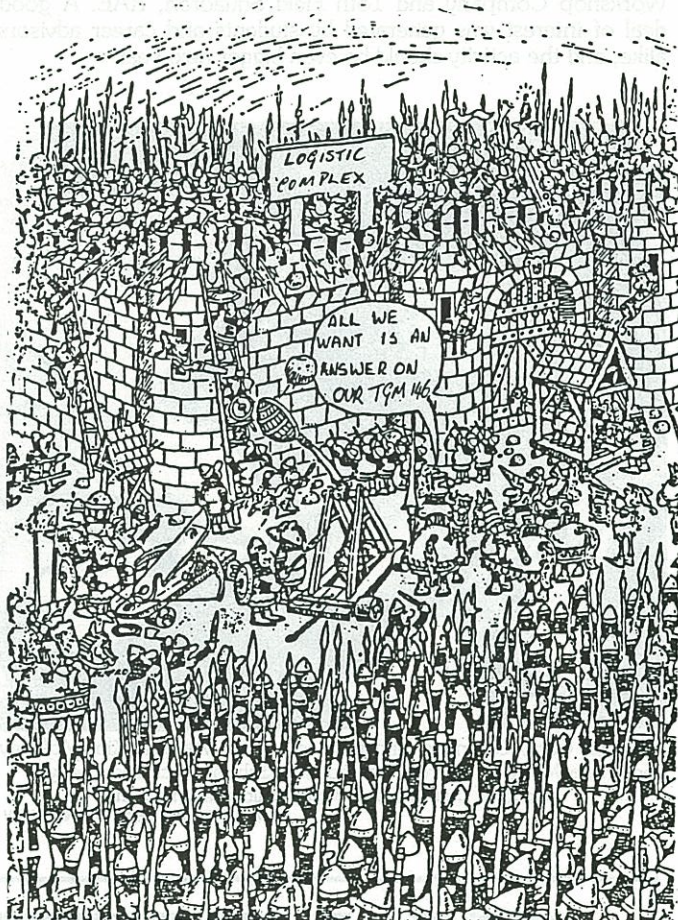 LOGISTIC
COMPLEX
ALL WE
WANT IS AN
ANSWER ON
OUR TGM 146